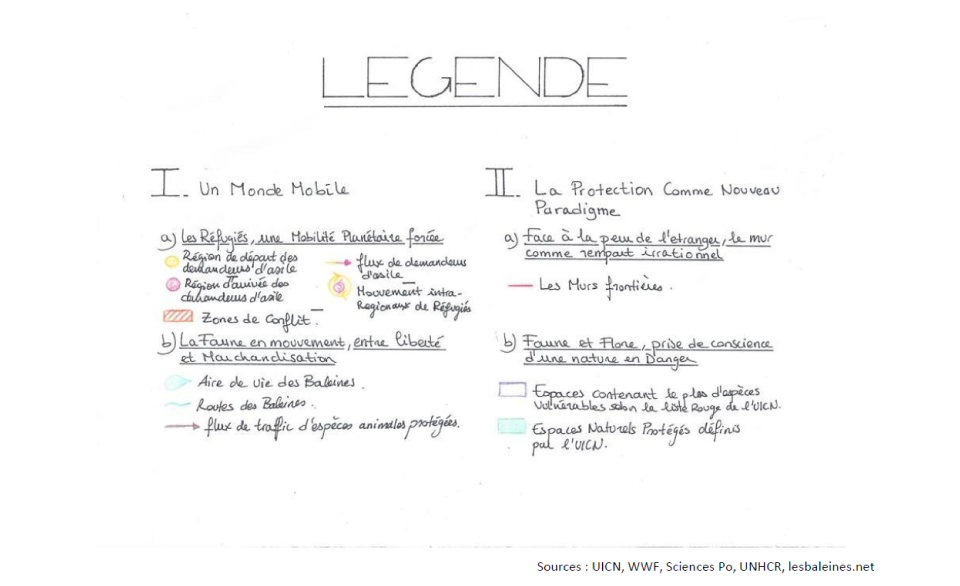 LEGENDE
I. Un Monde Mobile
a) Les Réfugiés, une Mobilité Planétaire forcée
Région de départ des
demandeurs d'asile
Région d'arrivée des
demandeurs d'asile
Zones de Conflit
flux de demandeurs
d'asile
Mouvement intra-
Regionaux de Réfugiés
b) La Faune en mouvement, entre liberté
et Marchandisation
Aire de vie des Baleines.
Routes des Baleines.
flux de traffic d'espèces animales protégées.
II. La Protection Comme Nouveau
Paradigme
a) Face à la peur de l'etranger, le mur
comme rempart irrationnel
Les Murs frontières.
b) Faune et Flore, prise de conscience
d'une nature en Danger
Espaces contenant le plus d'espèces
Vulnérables selon la liste Rouge de l'UICN.
Espaces Naturels Protégés définis
par l'UICN.
Sources : UICN, WWF, Sciences Po, UNHCR, lesbaleines.net